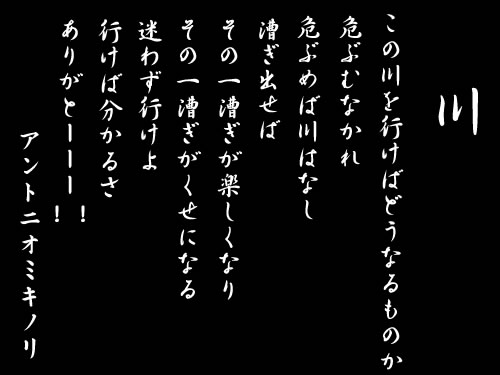 川
この川を行けばどうなるものか
危ぶむなかれ
危ぶめば川はなし
漕ぎ出せば
その一漕ぎが楽しくなり
その一漕ぎがくせになる
迷わず行けよ
行けば分かるさ
ありがとーーー!!
アントニオミキノリ